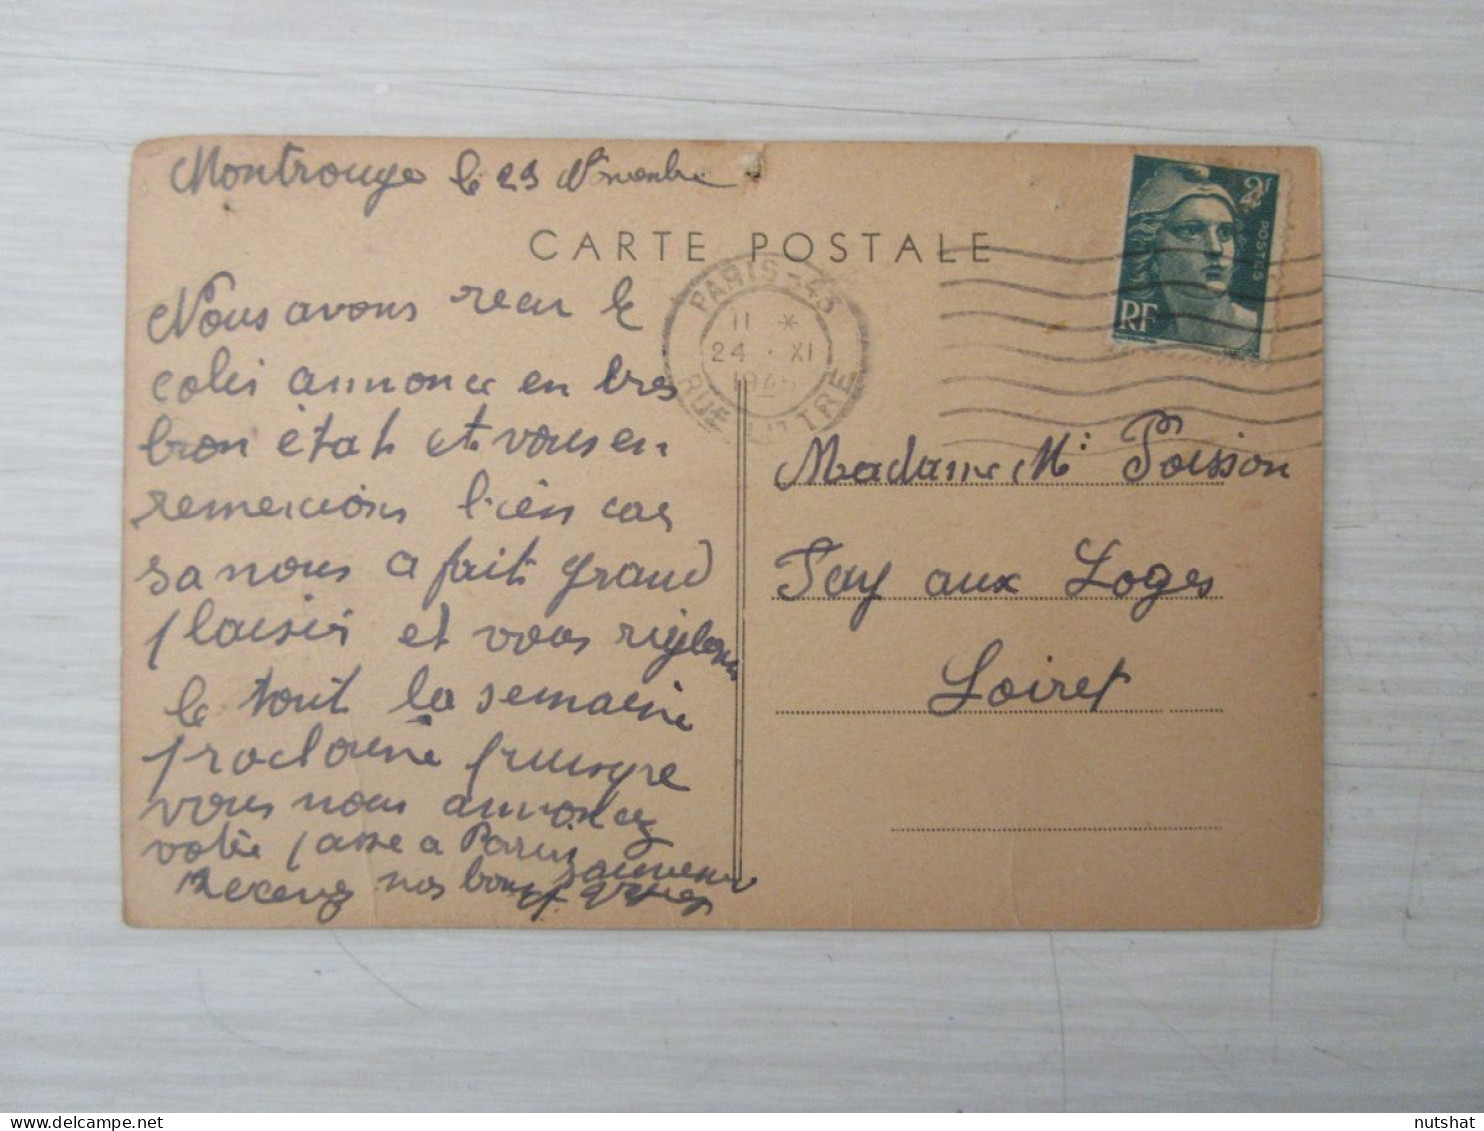 Montrouge le 23 Novembre
CARTE POSTALE
2F
POSTES
RF
PARIS-43
11 *
24 · XI
1945
RUE LITTRÉ
Nous avons recu le
colis annonce en tres
bon ètat et vous en
remercions bien car
sa nous a fait grand
plaisir et vous règlerons
le tout la semaine
prochaine puisque
vous nous annoncez
votre passe a Paris
Recevez nos bons
Madame M. Poisson
Fay aux Loges
Loiret
nutshat